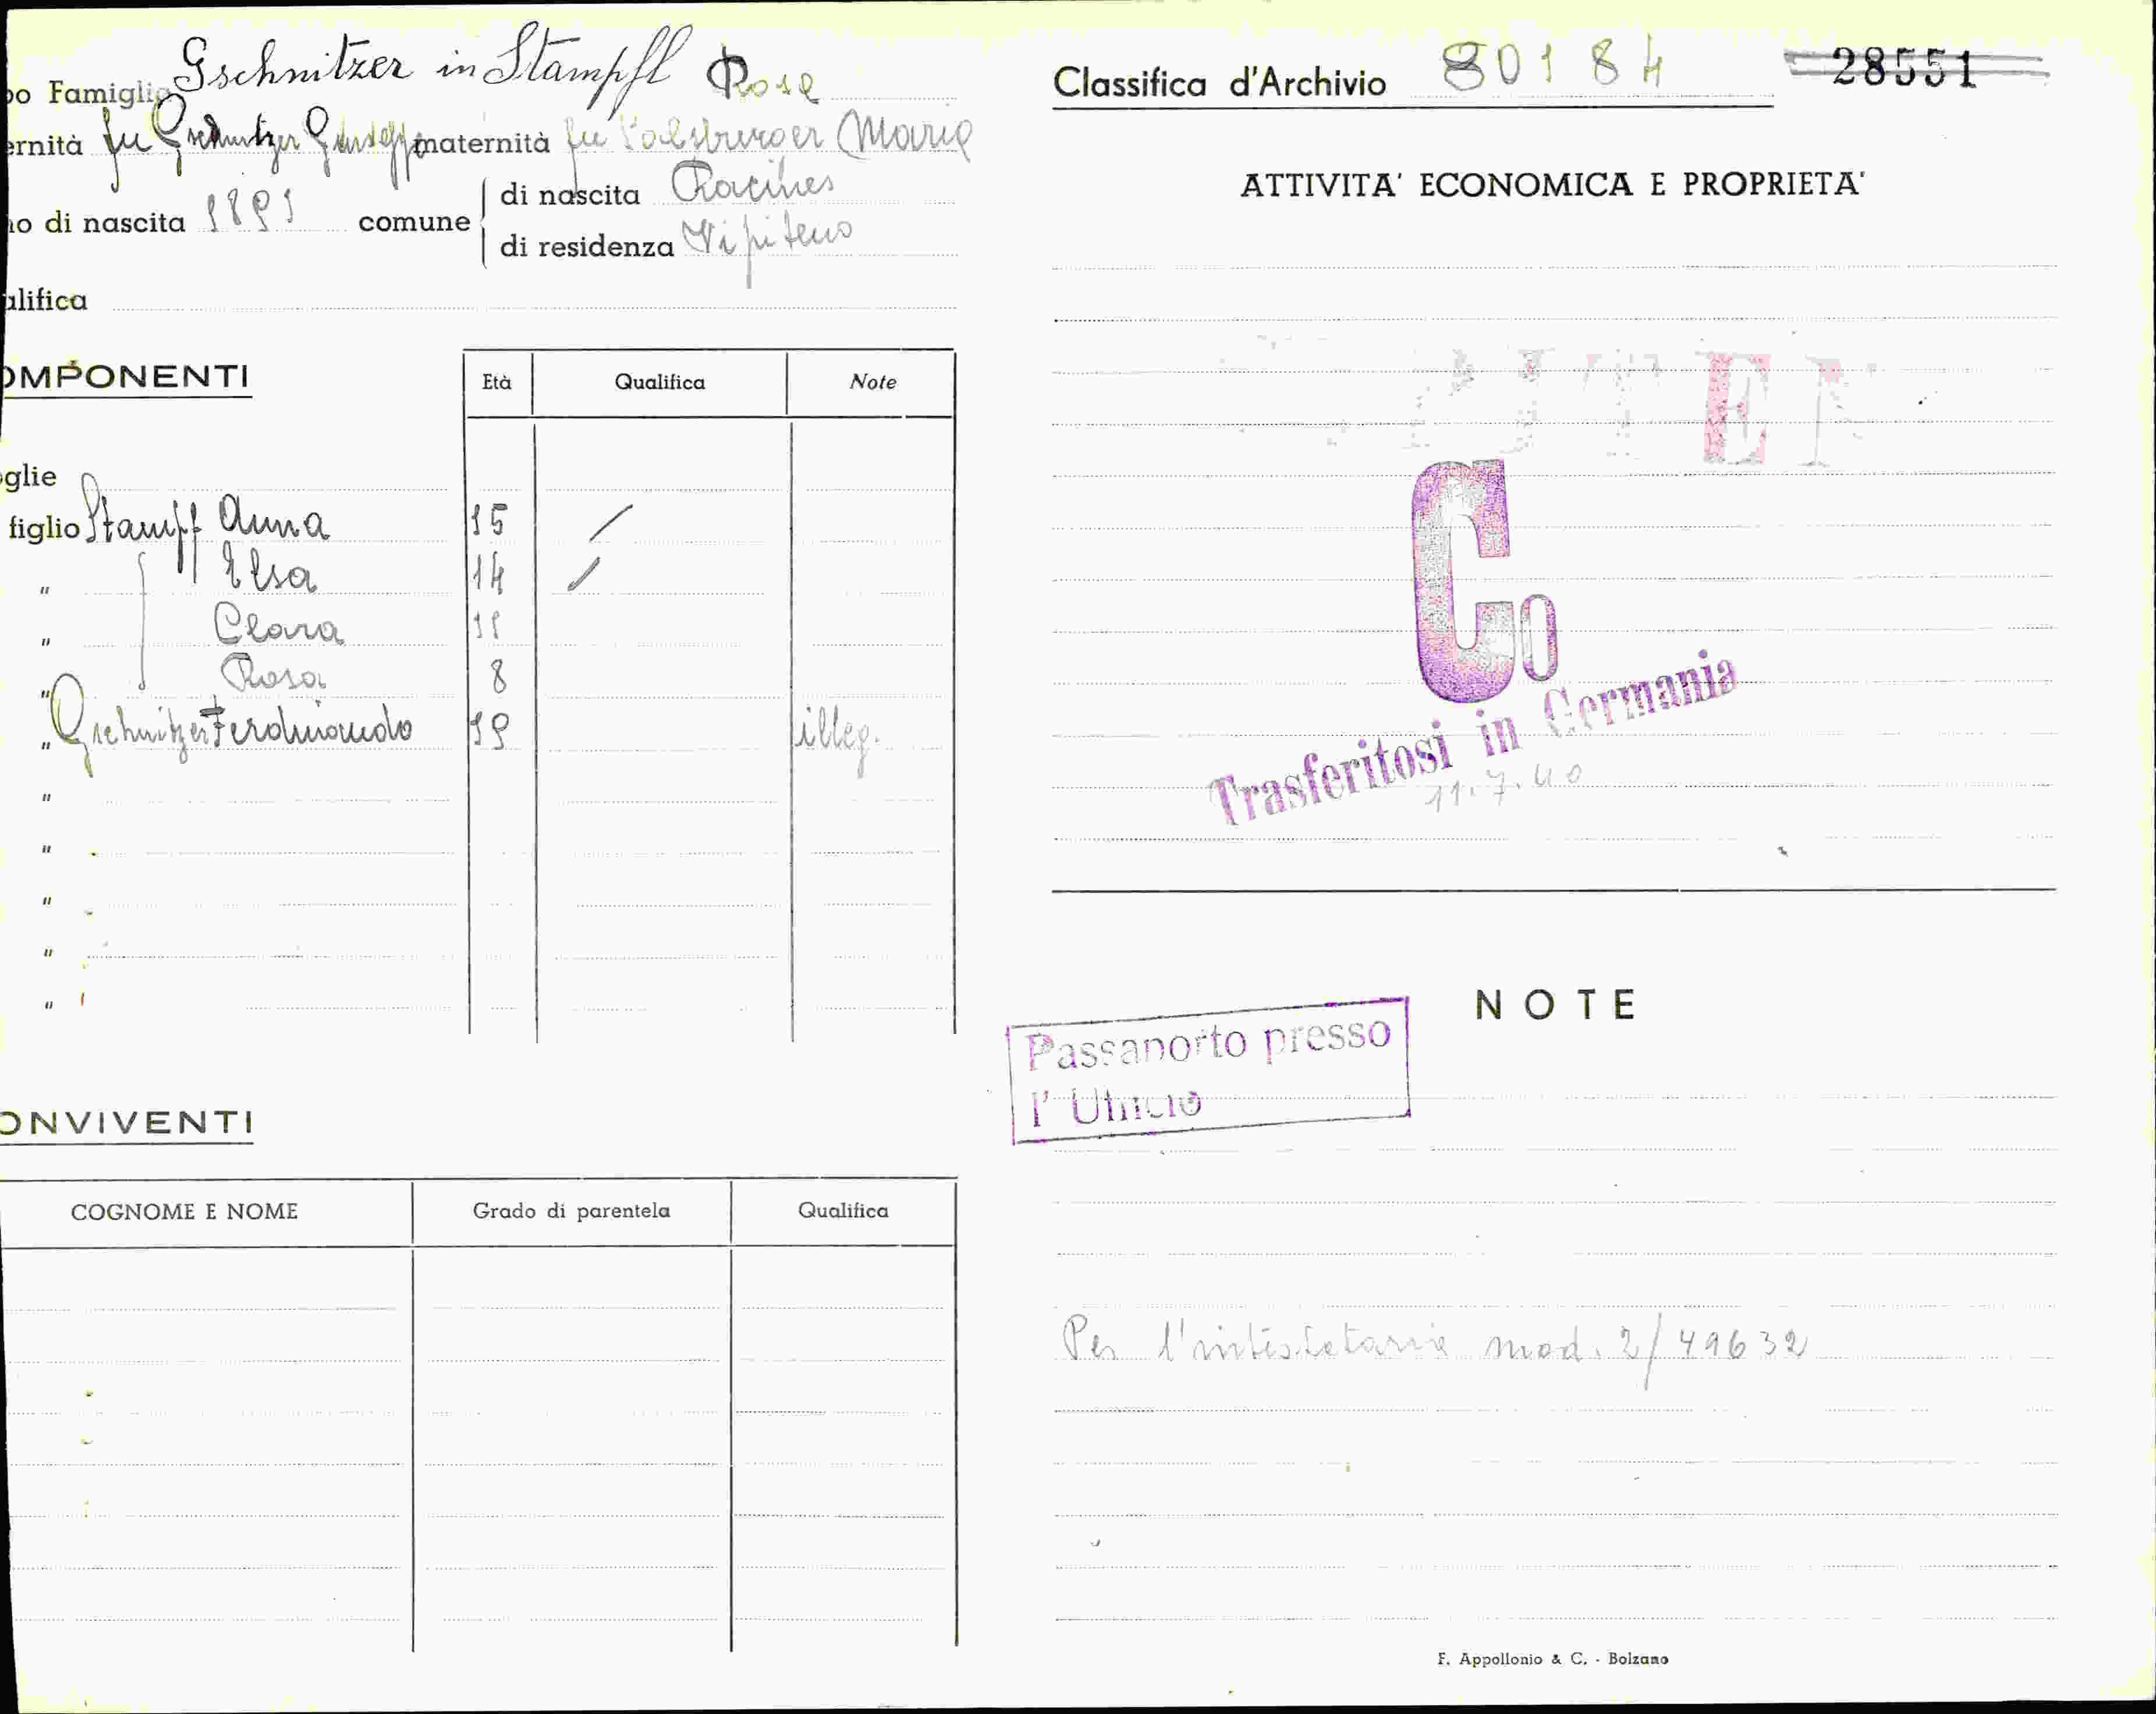 po Famiglia Gschnitzer in Stampfl Rosa
ernità fu Gschnitzer Giuseppe maternità fu Maria
no di nascita 1891 comune di nascita Racines
di residenza Vipiteno
alifica
OMPONENTI
Età Qualifica Note
oglie
figlio Stampfl Anna 15 /
" Elsa 14 /
" Clara 11
" Rosa 8
" Gschnitzer Ferdinando 19 illeg.
"
"
"
"
"
ONVIVENTI
COGNOME E NOME Grado di parentela Qualifica
Classifica d'Archivio 80184 28551
ATTIVITA' ECONOMICA E PROPRIETA'
Co
Trasferitosi in Germania
11.7.40
NOTE
Passaporto presso
l' Ufficio
Per l'intestataria mod. 2/49632
F. Appollonio & C. - Bolzano